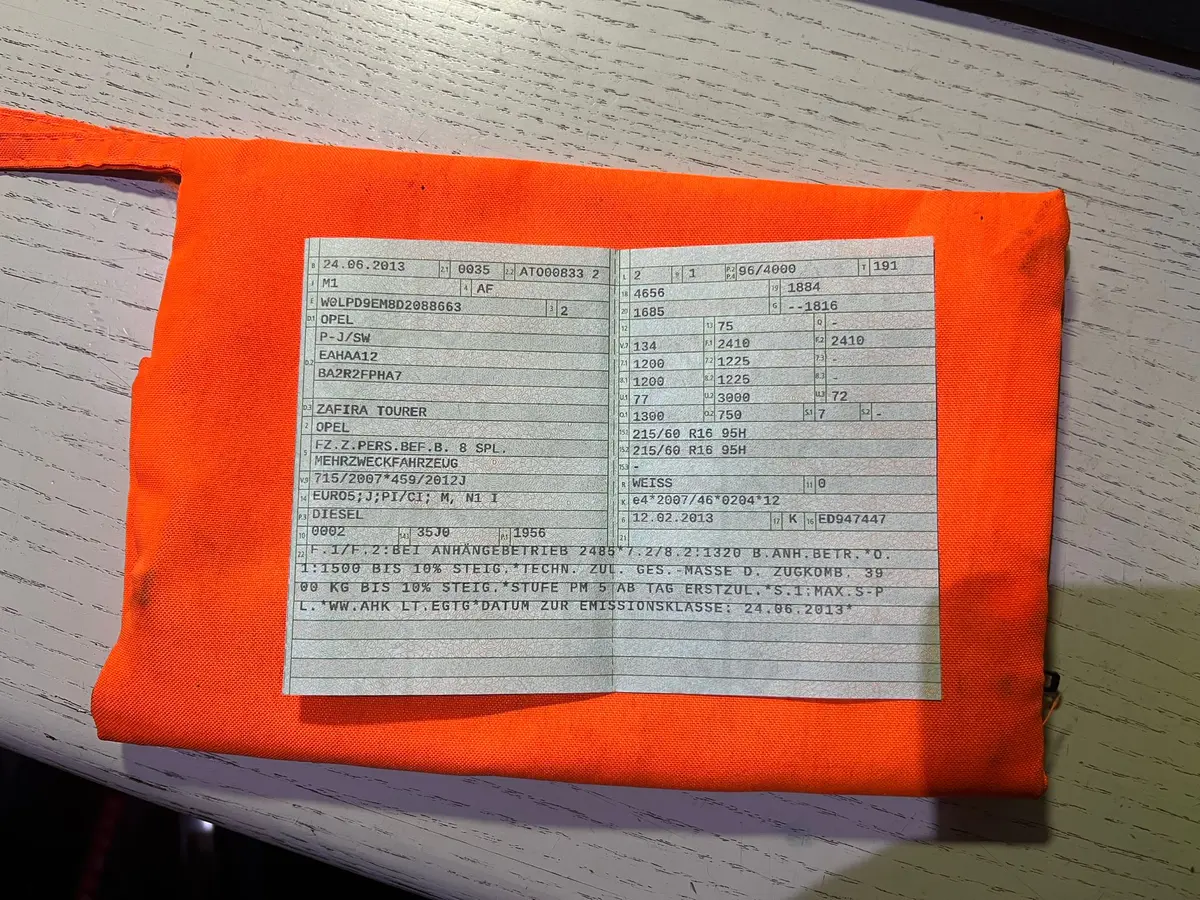 B 24.06.2013 2.1 0035 2.2 ATO00833 2
J M1 4 AF
E W0LPD9EM8D2088663 3 2
D.1 OPEL
P-J/SW
D.2 EAHAA12
BA2R2FPHA7
D.3 ZAFIRA TOURER
2 OPEL
5 FZ.Z.PERS.BEF.B. 8 SPL.
MEHRZWECKFAHRZEUG
V.9 715/2007*459/2012J
14 EURO5;J;PI/CI; M, N1 I
P.3 DIESEL
10 0002 14.1 35J0 P.1 1956
L 2 9 1 P.2 P.4 96/4000 T 191
18 4656 19 1884
20 1685 G --1816
12 13 75 Q -
V.7 134 F.1 2410 F.2 2410
7.1 1200 7.2 1225 7.3 -
8.1 1200 8.2 1225 8.3 -
U.1 77 U.2 3000 U.3 72
O.1 1300 O.2 750 S.1 7 S.2 -
15.1 215/60 R16 95H
15.2 215/60 R16 95H
15.3 -
R WEISS 11 0
K e4*2007/46*0204*12
6 12.02.2013 17 K 16 ED947447
21
22 F.1/F.2:BEI ANHÄNGEBETRIEB 2485*7.2/8.2:1320 B.ANH.BETR.*O.
1:1500 BIS 10% STEIG.*TECHN. ZUL. GES.-MASSE D. ZUGKOMB. 39
00 KG BIS 10% STEIG.*STUFE PM 5 AB TAG ERSTZUL.*S.1:MAX.S-P
L.*WW.AHK LT.EGTG*DATUM ZUR EMISSIONSKLASSE: 24.06.2013*